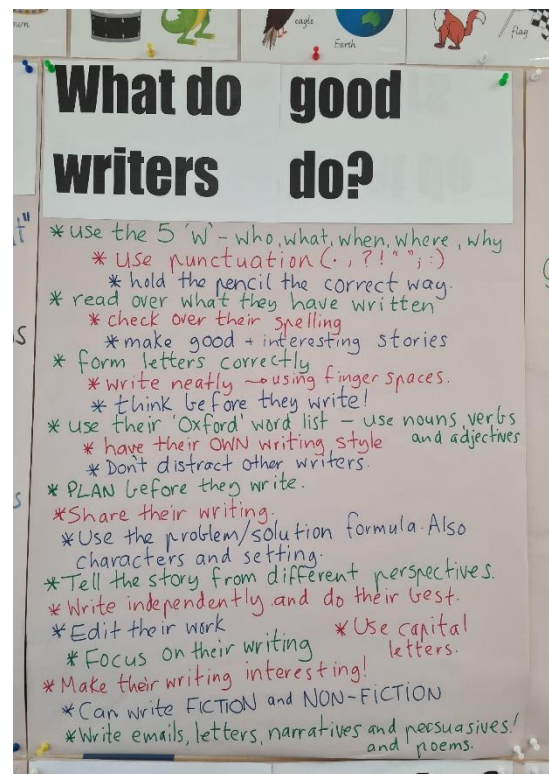 eagle
Earth
flag
What do good
writers do?
* use the 5 'W' - who, what, when, where, why
* use punctuation (. , ? ! " " ; :)
* hold the pencil the correct way.
* read over what they have written
* check over their spelling
* make good + interesting stories
* form letters correctly
* write neatly → using finger spaces.
* think before they write!
* use their 'Oxford' word list - use nouns, verbs
and adjectives
* have their OWN writing style
* Don't distract other writers.
* PLAN before they write.
* Share their writing.
* Use the problem/solution formula. Also
characters and setting.
* Tell the story from different perspectives.
* Write independently and do their best.
* Edit their work
* Use capital
letters.
* Focus on their writing
* Make their writing interesting!
* Can write FICTION and NON-FICTION
* Write emails, letters, narratives and persuasives!
and poems.